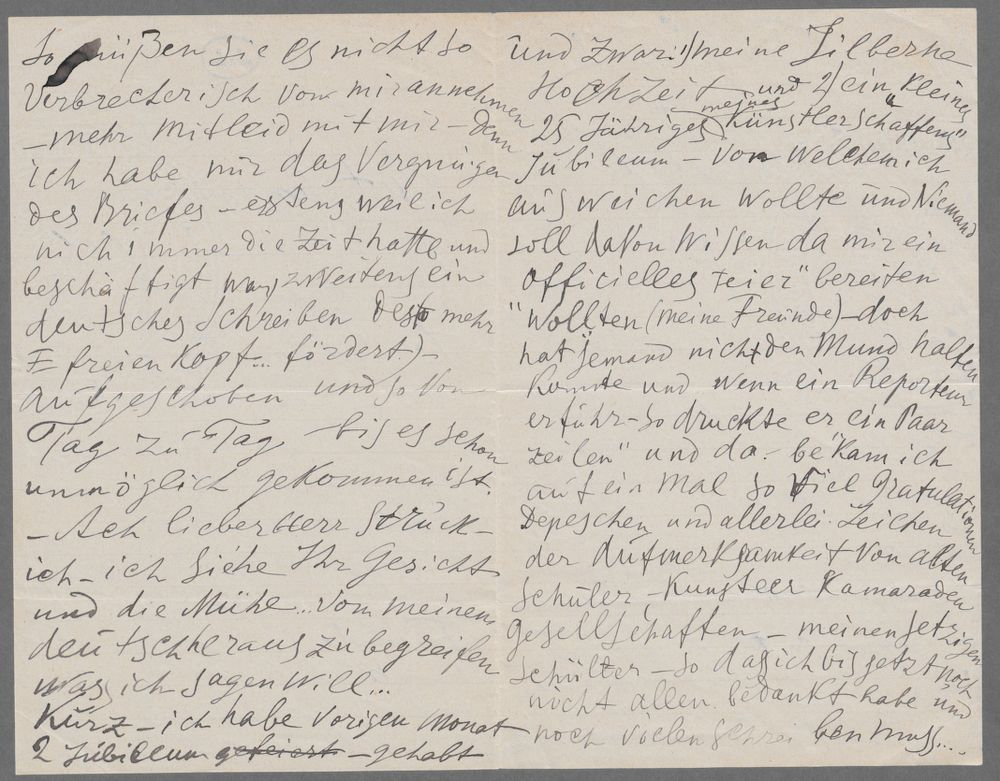 So müßen Sie es nicht so
Verbrecherisch von mir annehmen
– mehr Mitleid mit mir – denn
ich habe mir das Vergnügen
des Briefes – erstens weil ich
nich immer die Zeit hatte und
beschäftigt war, zweitens ein
deutsches Schreiben desto mehr
freien Kopf... fördert) –
aufgeschoben und so von
Tag zu Tag – bis es schon
unmöglich gekommen ist.
– Ach lieber Herr Strück –
ich – ich siehe Ihr Gesicht
und die Mühe... vom meinem
deutsch heraus zu begreifen
was ich sagen will...
Kurz – ich habe vorigen Monat
2 Jubileum gefeiert – gehabt
und zwar: 1) meine Silberne
Hochzeit und 2) ein kleines
25 Jähriges meines "Künstlerschaffens"
Jubileum – von welchem ich
ausweichen wollte und Niemand
soll davon wissen da mir ein
officielles Feier" bereiten
"wollten (meine Freunde) – doch
hat jemand nicht den Mund halten
konnte und wenn ein Reporteur
erführ – so druckte er ein Paar
zeilen" und da – bekam ich
auf ein Mal so viel Gratulationen
Depeschen und allerlei Zeichen
der Aufmerksamkeit von alten
Schüler, Kunsteer Kamaraden
gesellschaften – meinen jetzigen
Schülter – so dass ich bis jetzt noch
nicht allen bedankt habe und
noch vielen schreiben muss....